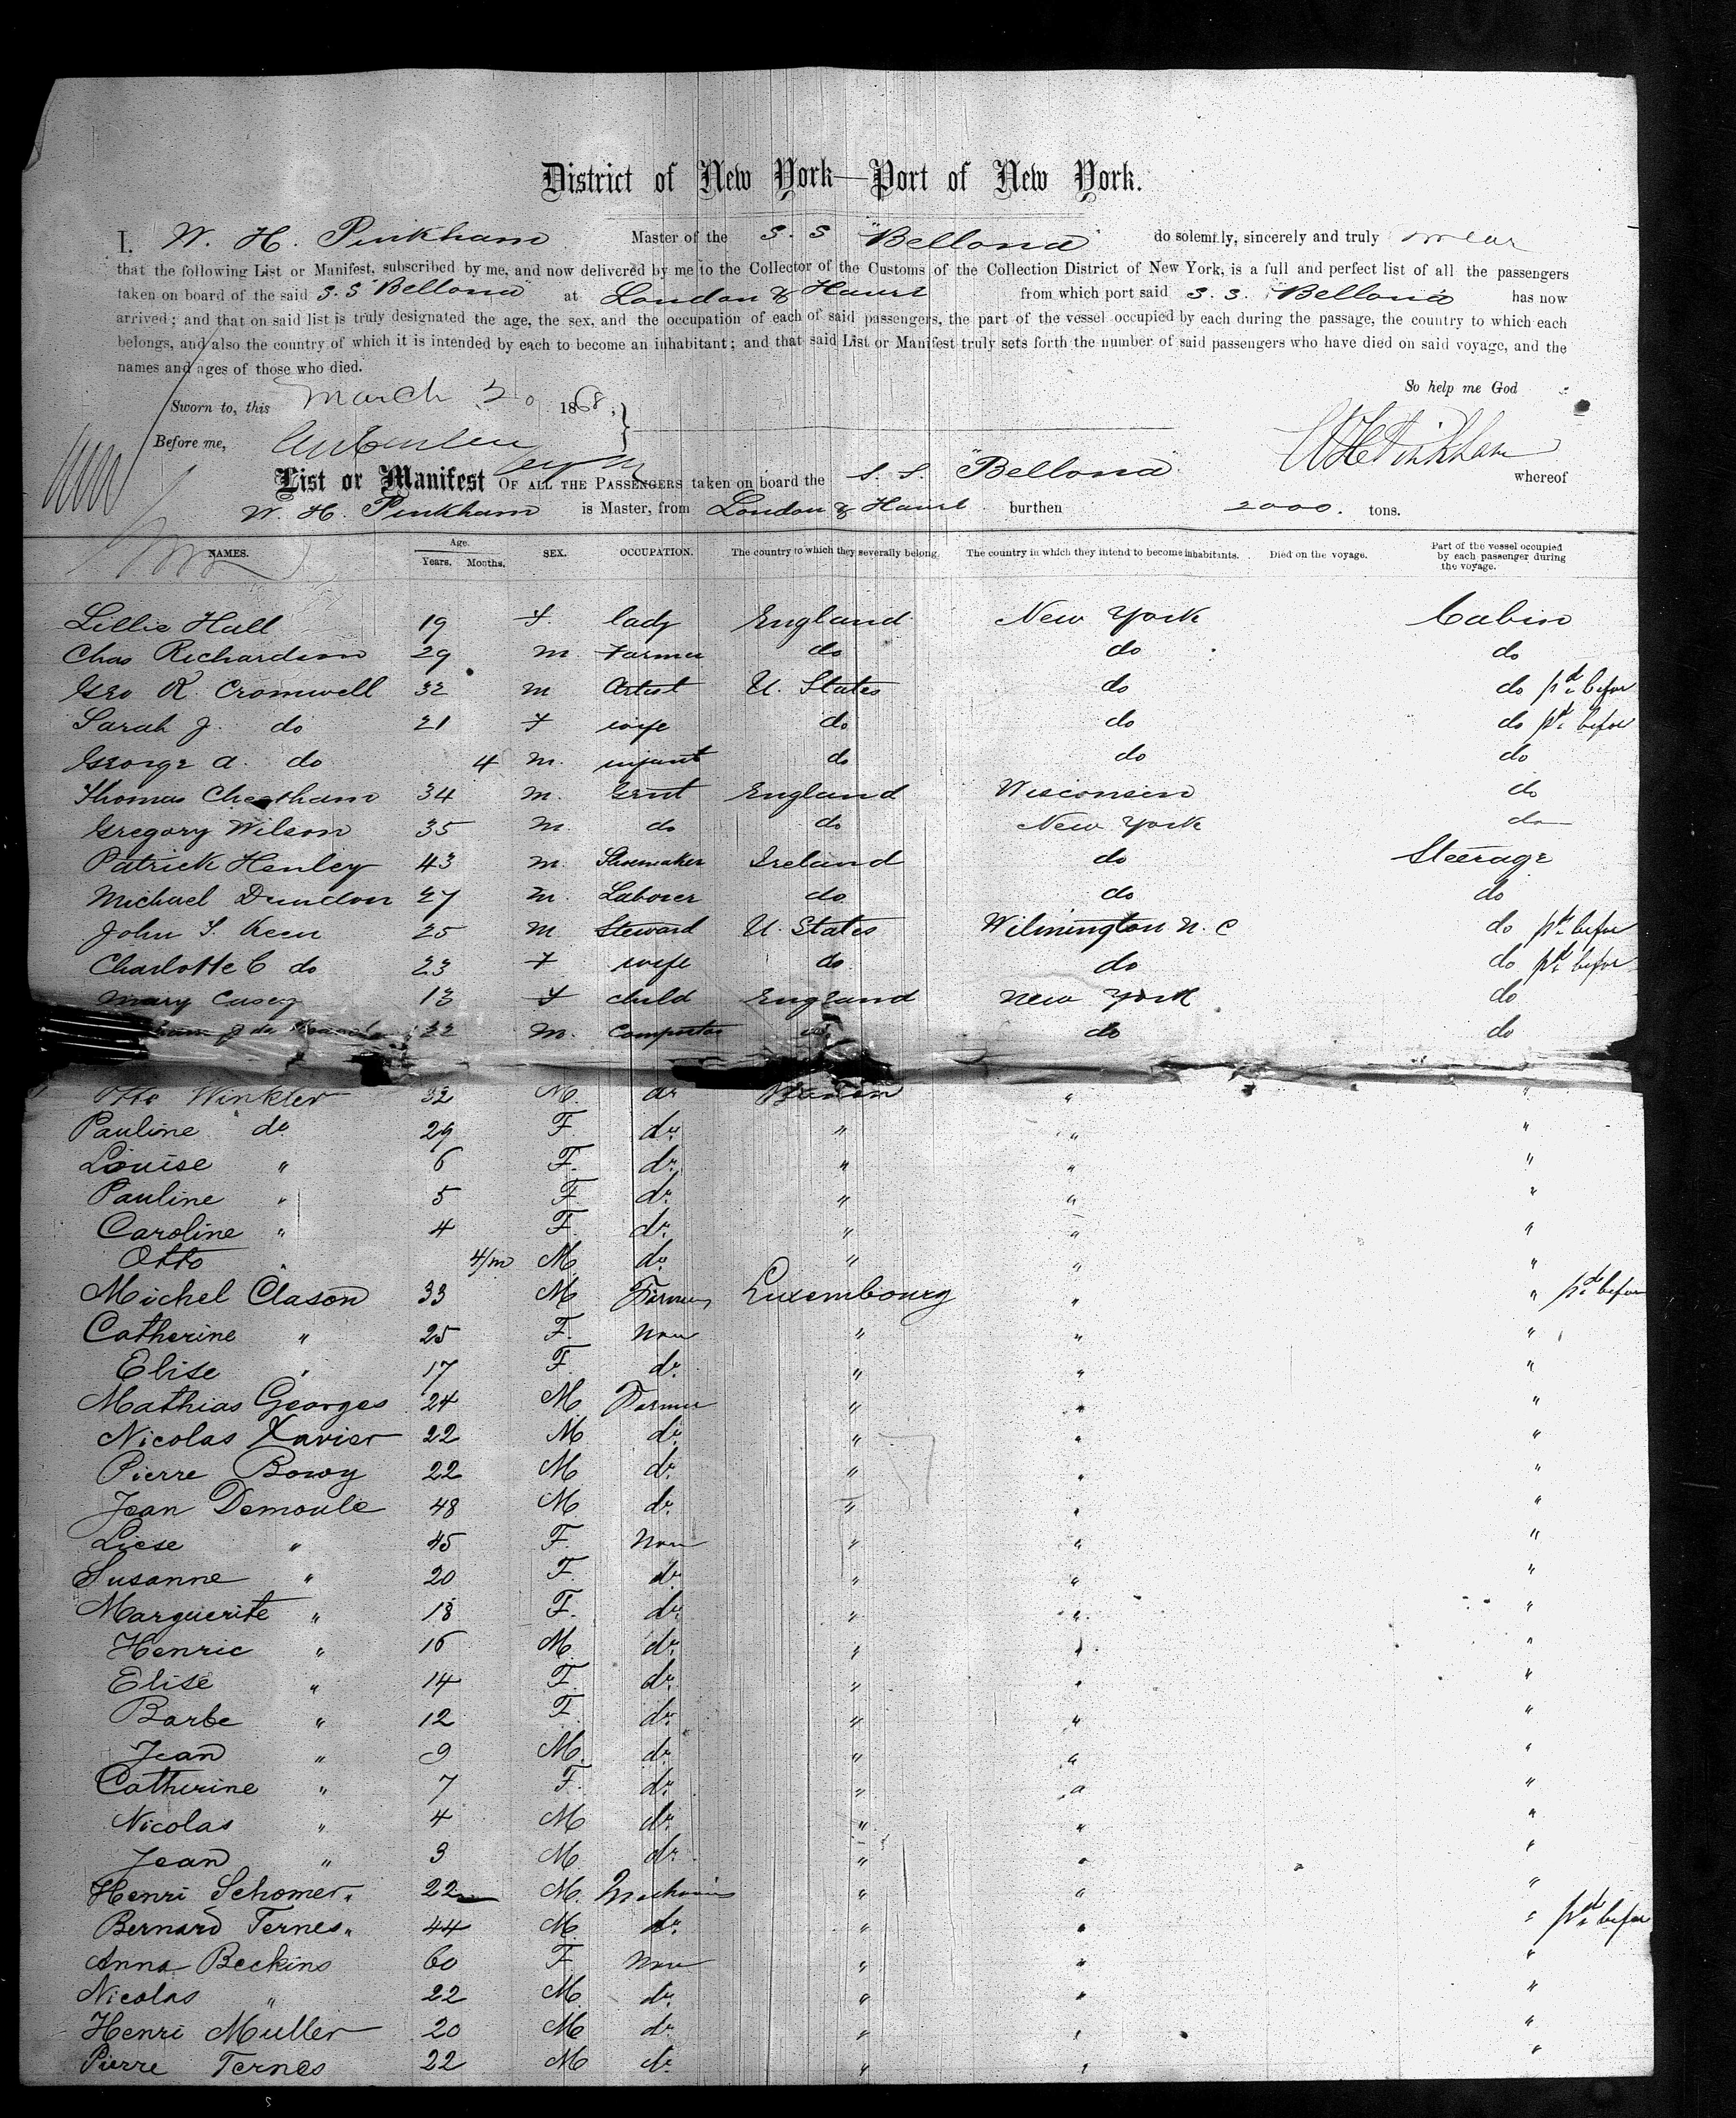 District of New York—Port of New York.
I, W. H. Pinkham Master of the S. S "Bellona" do solemnly, sincerely and truly swear
that the following List or Manifest, subscribed by me, and now delivered by me to the Collector of the Customs of the Collection District of New York, is a full and perfect list of all the passengers
taken on board of the said S. S "Bellona" at London & Havre from which port said S. S. "Bellona" has now
arrived; and that on said list is truly designated the age, the sex, and the occupation of each of said passengers, the part of the vessel occupied by each during the passage, the country to which each
belongs, and also the country of which it is intended by each to become an inhabitant; and that said List or Manifest truly sets forth the number of said passengers who have died on said voyage, and the
names and ages of those who died.
So help me God
Sworn to, this March 20 1868,
Before me,
W H Pinkham
List or Manifest OF ALL THE PASSENGERS taken on board the S. S. "Bellona" whereof
W. H. Pinkham is Master, from London & Havre burthen 2000. tons.
NAMES. Age. Years. Months. SEX. OCCUPATION. The country to which they severally belong. The country in which they intend to become inhabitants. Died on the voyage. Part of the vessel occupied by each passenger during the voyage.
Lillie Hall 19 F. lady England New York Cabin
Chas Richardson 29 m. Farmer do do do
Geo R. Cromwell 32 m Artist U. States do do before
Sarah J. do 21 F wife do do do before
George A. do 4 m. infant do do do
Thomas Cheetham 34 m. Gent England Wisconsin do
Gregory Wilson 35 m. do do New York do
Patrick Henley 43 m. Shoemaker Ireland do Steerage
Michael Dundon 27 m. Laborer do do do
John S. Keen 25 m Steward U. States Wilmington N. C do before
Charlotte C do 23 F wife do do do before
Mary Casey 13 F child England New York do
32 m. do do
Otto Winkler 32 M. do " "
Pauline do 29 F. do " " "
Louise " 6 F. do " " "
Pauline " 5 F. do " " "
Caroline " 4 F. do " " "
Otto " 4/m M do " " "
Michel Clason 33 M Farmer Luxembourg " " before
Catherine " 25 F. None " " "
Elise " 17 F. do " " "
Mathias Georges 24 M. Farmer " " "
Nicolas Xavier 22 M do " " "
Pierre Bowy 22 M do " " "
Jean Demoule 48 M. do " " "
Liese " 45 F. None " " "
Susanne " 20 F. do " " "
Marguerite " 18 F. do " " "
Henric " 16 M. do " " "
Elise " 14 F. do " " "
Barbe " 12 F. do " " "
Jean " 9 M. do " " "
Catherine " 7 F. do " " "
Nicolas " 4 M do " " "
Jean " 3 M do " " "
Henri Schomer 22 M. Mechanic " " "
Bernard Ternes 44 M do " " " before
Anna Beckins 60 F None " " "
Nicolas " 22 M do " " "
Henri Muller 20 M do " " "
Pierre Ternes 22 M do " " "